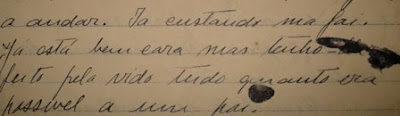 a andar. Ja custando ma fai.
Ja está bem cara mas tenho
feito pela vida tudo quanto era
possivel a um pai.